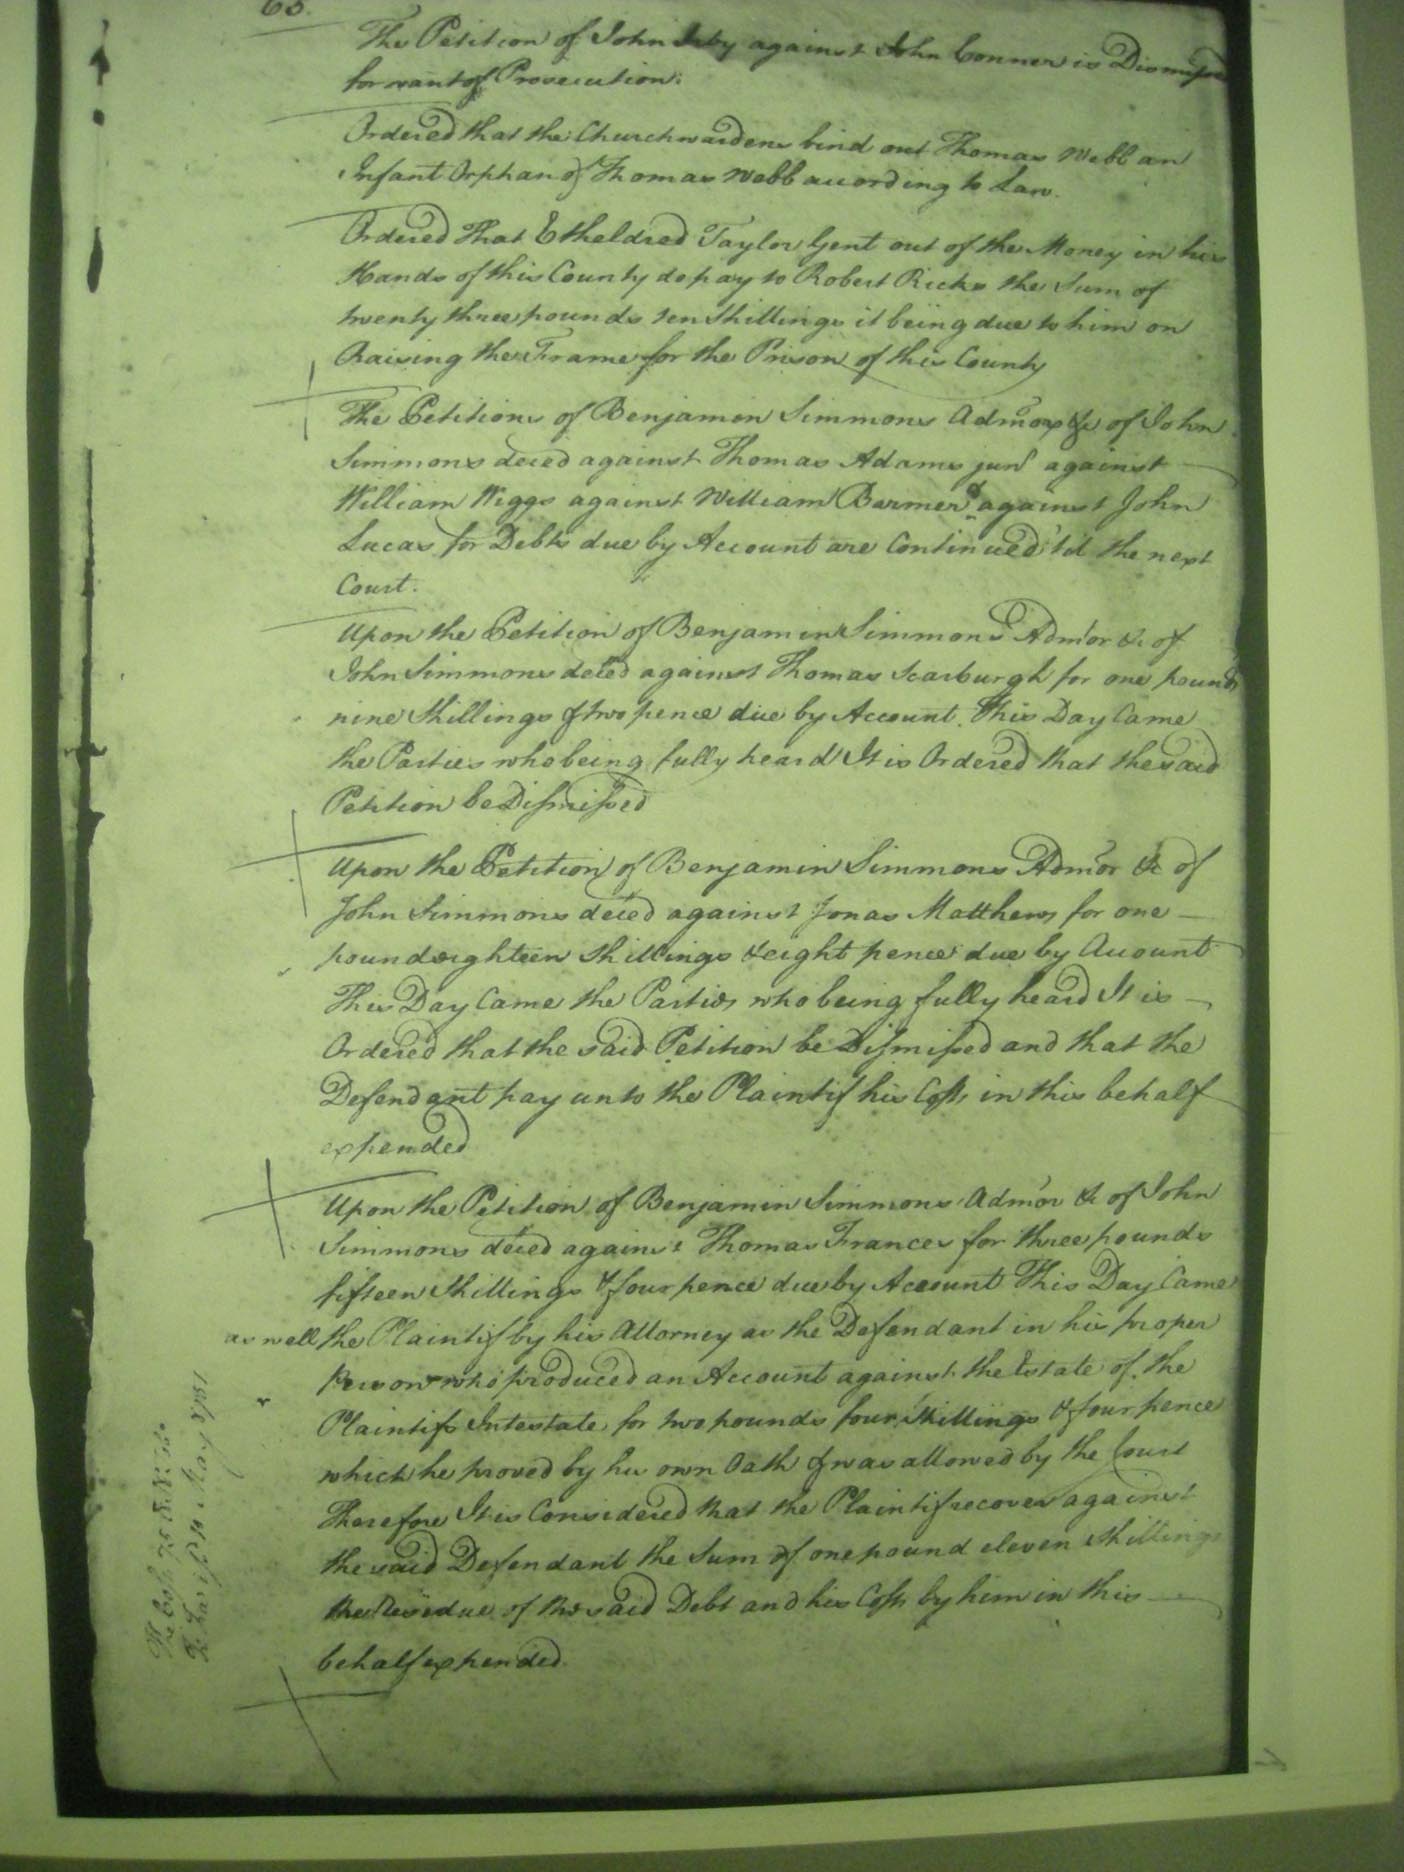 The Petition of John Irby against John Conner is Dismissed
for want of Prosecution.
Ordered that the Churchwardens bind out Thomas Webb an
Infant Orphan of Thomas Webb according to Law.
Ordered That Etheldred Taylor Gent out of the Money in his
Hands of this County do pay to Robert Ricks the Sum of
twenty three pounds ten Shillings it being due to him on
Raising the Frame for the Prison of this County
The Petitions of Benjamin Simmons Admor &c of John
Simmons deced against Thomas Adams junr against
William Wiggs against William Barmer & against John
Lucas for Debts due by Account are Continued 'til the next
Court.
Upon the Petition of Benjamin Simmons Admor &c of
John Simmons deced against Thomas Scarburgh for one pound
nine Shillings & two pence due by Account. This Day Came
the Parties who being fully heard It is Ordered that the said
Petition be Dismissed
Upon the Petition of Benjamin Simmons Admor &c of
John Simmons deced against Jonas Matthews for one
pound eighteen Shillings & eight pence due by Account
This Day Came the Parties who being fully heard It is
Ordered that the said Petition be Dismissed and that the
Defendant pay unto the Plaintif his Costs in this behalf
expended
Upon the Petition of Benjamin Simmons Admor &c of John
Simmons deced against Thomas Frances for three pounds
fifteen Shillings & four pence due by Account This Day Came
as well the Plaintif by his Attorney as the Defendant in his proper
Person who produced an Account against the Estate of the
Plaintifs Intestate for two pounds four Shillings & four pence
which he proved by his own Oath & was allowed by the Court
Therefore It is Considered that the Plaintif recover against
the said Defendant the Sum of one pound eleven Shillings
the Residue of the said Debt and his Costs by him in this
behalf expended.